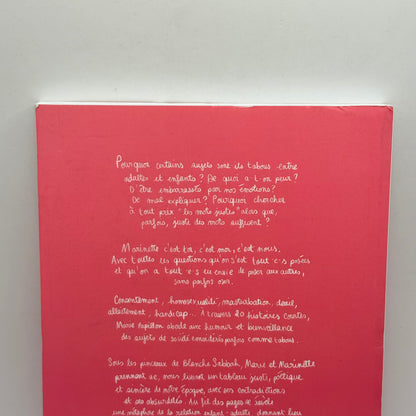 Pourquoi certains sujets sont-ils tabous entre
adultes et enfants ? De quoi a-t-on peur ?
D'être embarrassés par nos émotions ?
De mal expliquer ? Pourquoi chercher
à tout prix "les mots justes" alors que,
parfois, juste des mots suffisent ?
Marinette c'est toi, c'est moi, c'est nous.
Avec toutes les questions qu'on s'est tout·e·s posées
et qu'on a tout·e·s eu envie de poser aux autres,
sans parfois oser.
Consentement, homosexualité, masturbation, deuil,
allaitement, handicap... À travers 20 histoires courtes,
Marie Papillon aborde avec humour et bienveillance
des sujets de société considérés parfois comme tabous.
Sous les pinceaux de Blanche Sabbah, Marie et Marinette
prennent vie, nous livrant un tableau juste, poétique
et sincère de notre époque, avec ses contradictions
et ses absurdités. Au fil des pages se dessine
une métaphore de la relation enfant-adulte donnant lieu